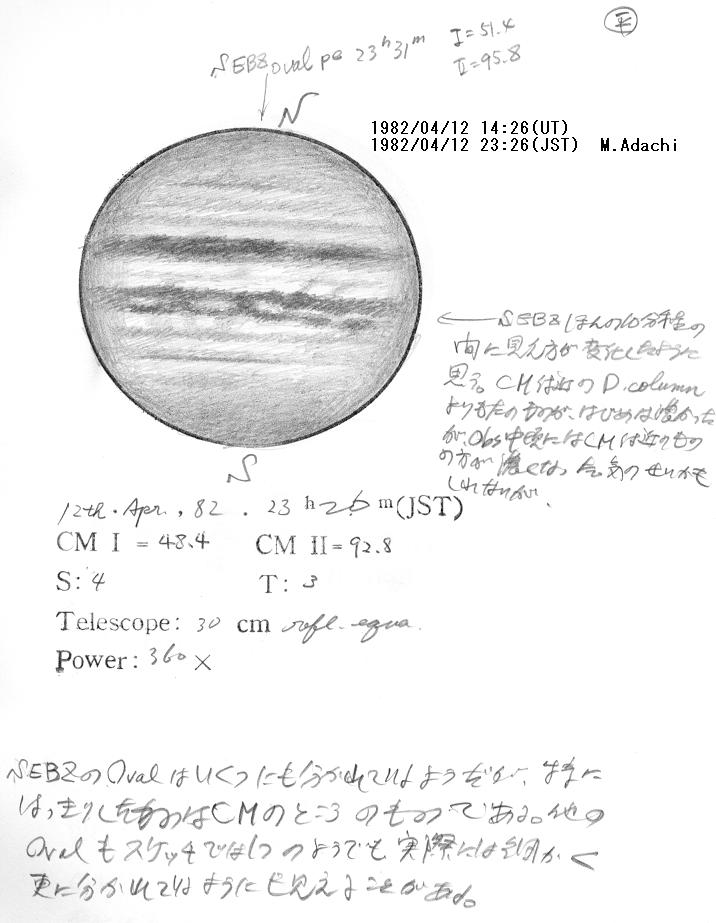 平
SEBZ oval pc 23h31m I=51.4
II=95.8
N
1982/04/12 14:26(UT)
1982/04/12 23:26(JST) M.Adachi
← SEBZ ほんの10分程の
間に見え方が変化したように
思う。CM付近の D.column
よりもたのものが、はじめは濃かった
が、Obs中頃にはCM付近のもの
の方が濃くなった。気のせいかも
しれないが、
S
12th. Apr., 82. 23h26m(JST)
CM I = 48.4 CM II = 92.8
S: 4 T: 3
Telescope: 30 cm refl. equa.
Power: 360 ×
SEBZのOvalはいくつにも分かれているようだが、特に
はっきりしたものはCMのところのものである。他の
Ovalもスケッチでは1つのようでも実際には細かく
更に分かれているようにも見えることがある。